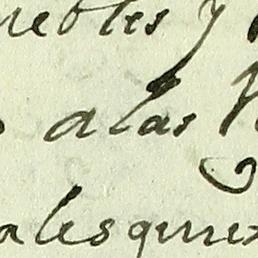 uebles y
alas
alesquier